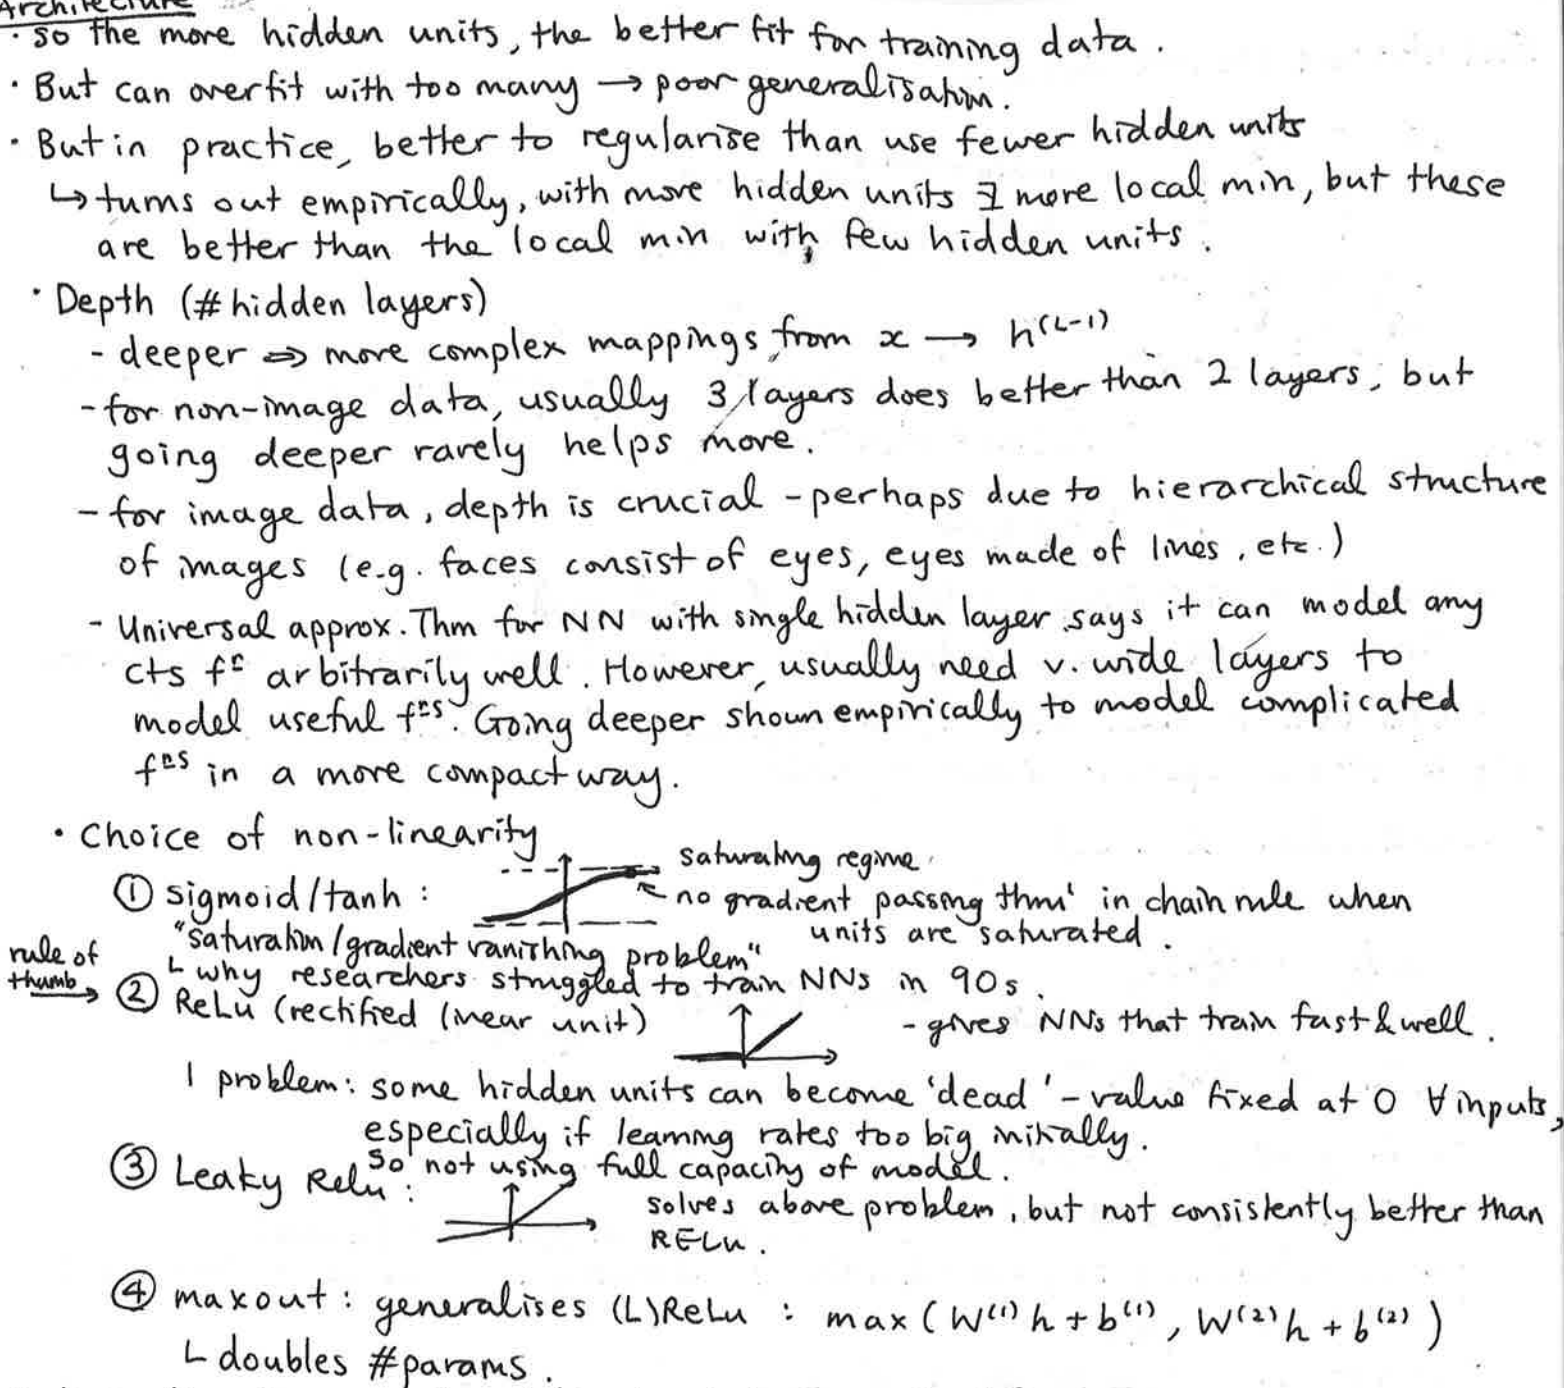 Architecture
· so the more hidden units, the better fit for training data.
· But can overfit with too many → poor generalisation.
· But in practice, better to regularise than use fewer hidden units
↳ turns out empirically, with more hidden units ∃ more local min, but these
are better than the local min with few hidden units.
· Depth (# hidden layers)
- deeper ⇒ more complex mappings from x → h^(L-1)
- for non-image data, usually 3 layers does better than 2 layers, but
going deeper rarely helps more.
- for image data, depth is crucial - perhaps due to hierarchical structure
of images (e.g. faces consist of eyes, eyes made of lines, etc.)
- Universal approx. Thm for NN with single hidden layer says it can model any
cts fⁿ arbitrarily well. However, usually need v. wide layers to
model useful fⁿˢ. Going deeper shown empirically to model complicated
fⁿˢ in a more compact way.
· Choice of non-linearity
saturating regime.
① sigmoid/tanh :
← no gradient passing thru' in chain rule when
units are saturated.
"saturation/gradient vanishing problem"
└ why researchers struggled to train NNs in 90s.
rule of
thumb →
② ReLu (rectified linear unit)
- gives NNs that train fast & well.
1 problem: some hidden units can become 'dead' - value fixed at 0 ∀ inputs,
especially if learning rates too big initially.
so not using full capacity of model.
③ Leaky Relu :
solves above problem, but not consistently better than
RELu.
④ maxout : generalises (L)ReLu : max(W^(1)h + b^(1), W^(2)h + b^(2))
└ doubles #params.